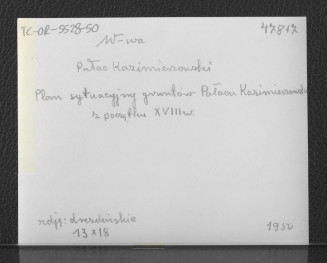 TC-OR-5528-50 47817
W-wa
Pałac Kazimierowski
Plan sytuacyjny gruntów Pałacu Kazimierowsk
z początku XVIII w.
zdj: drezdeńskie
13 x 18 1950